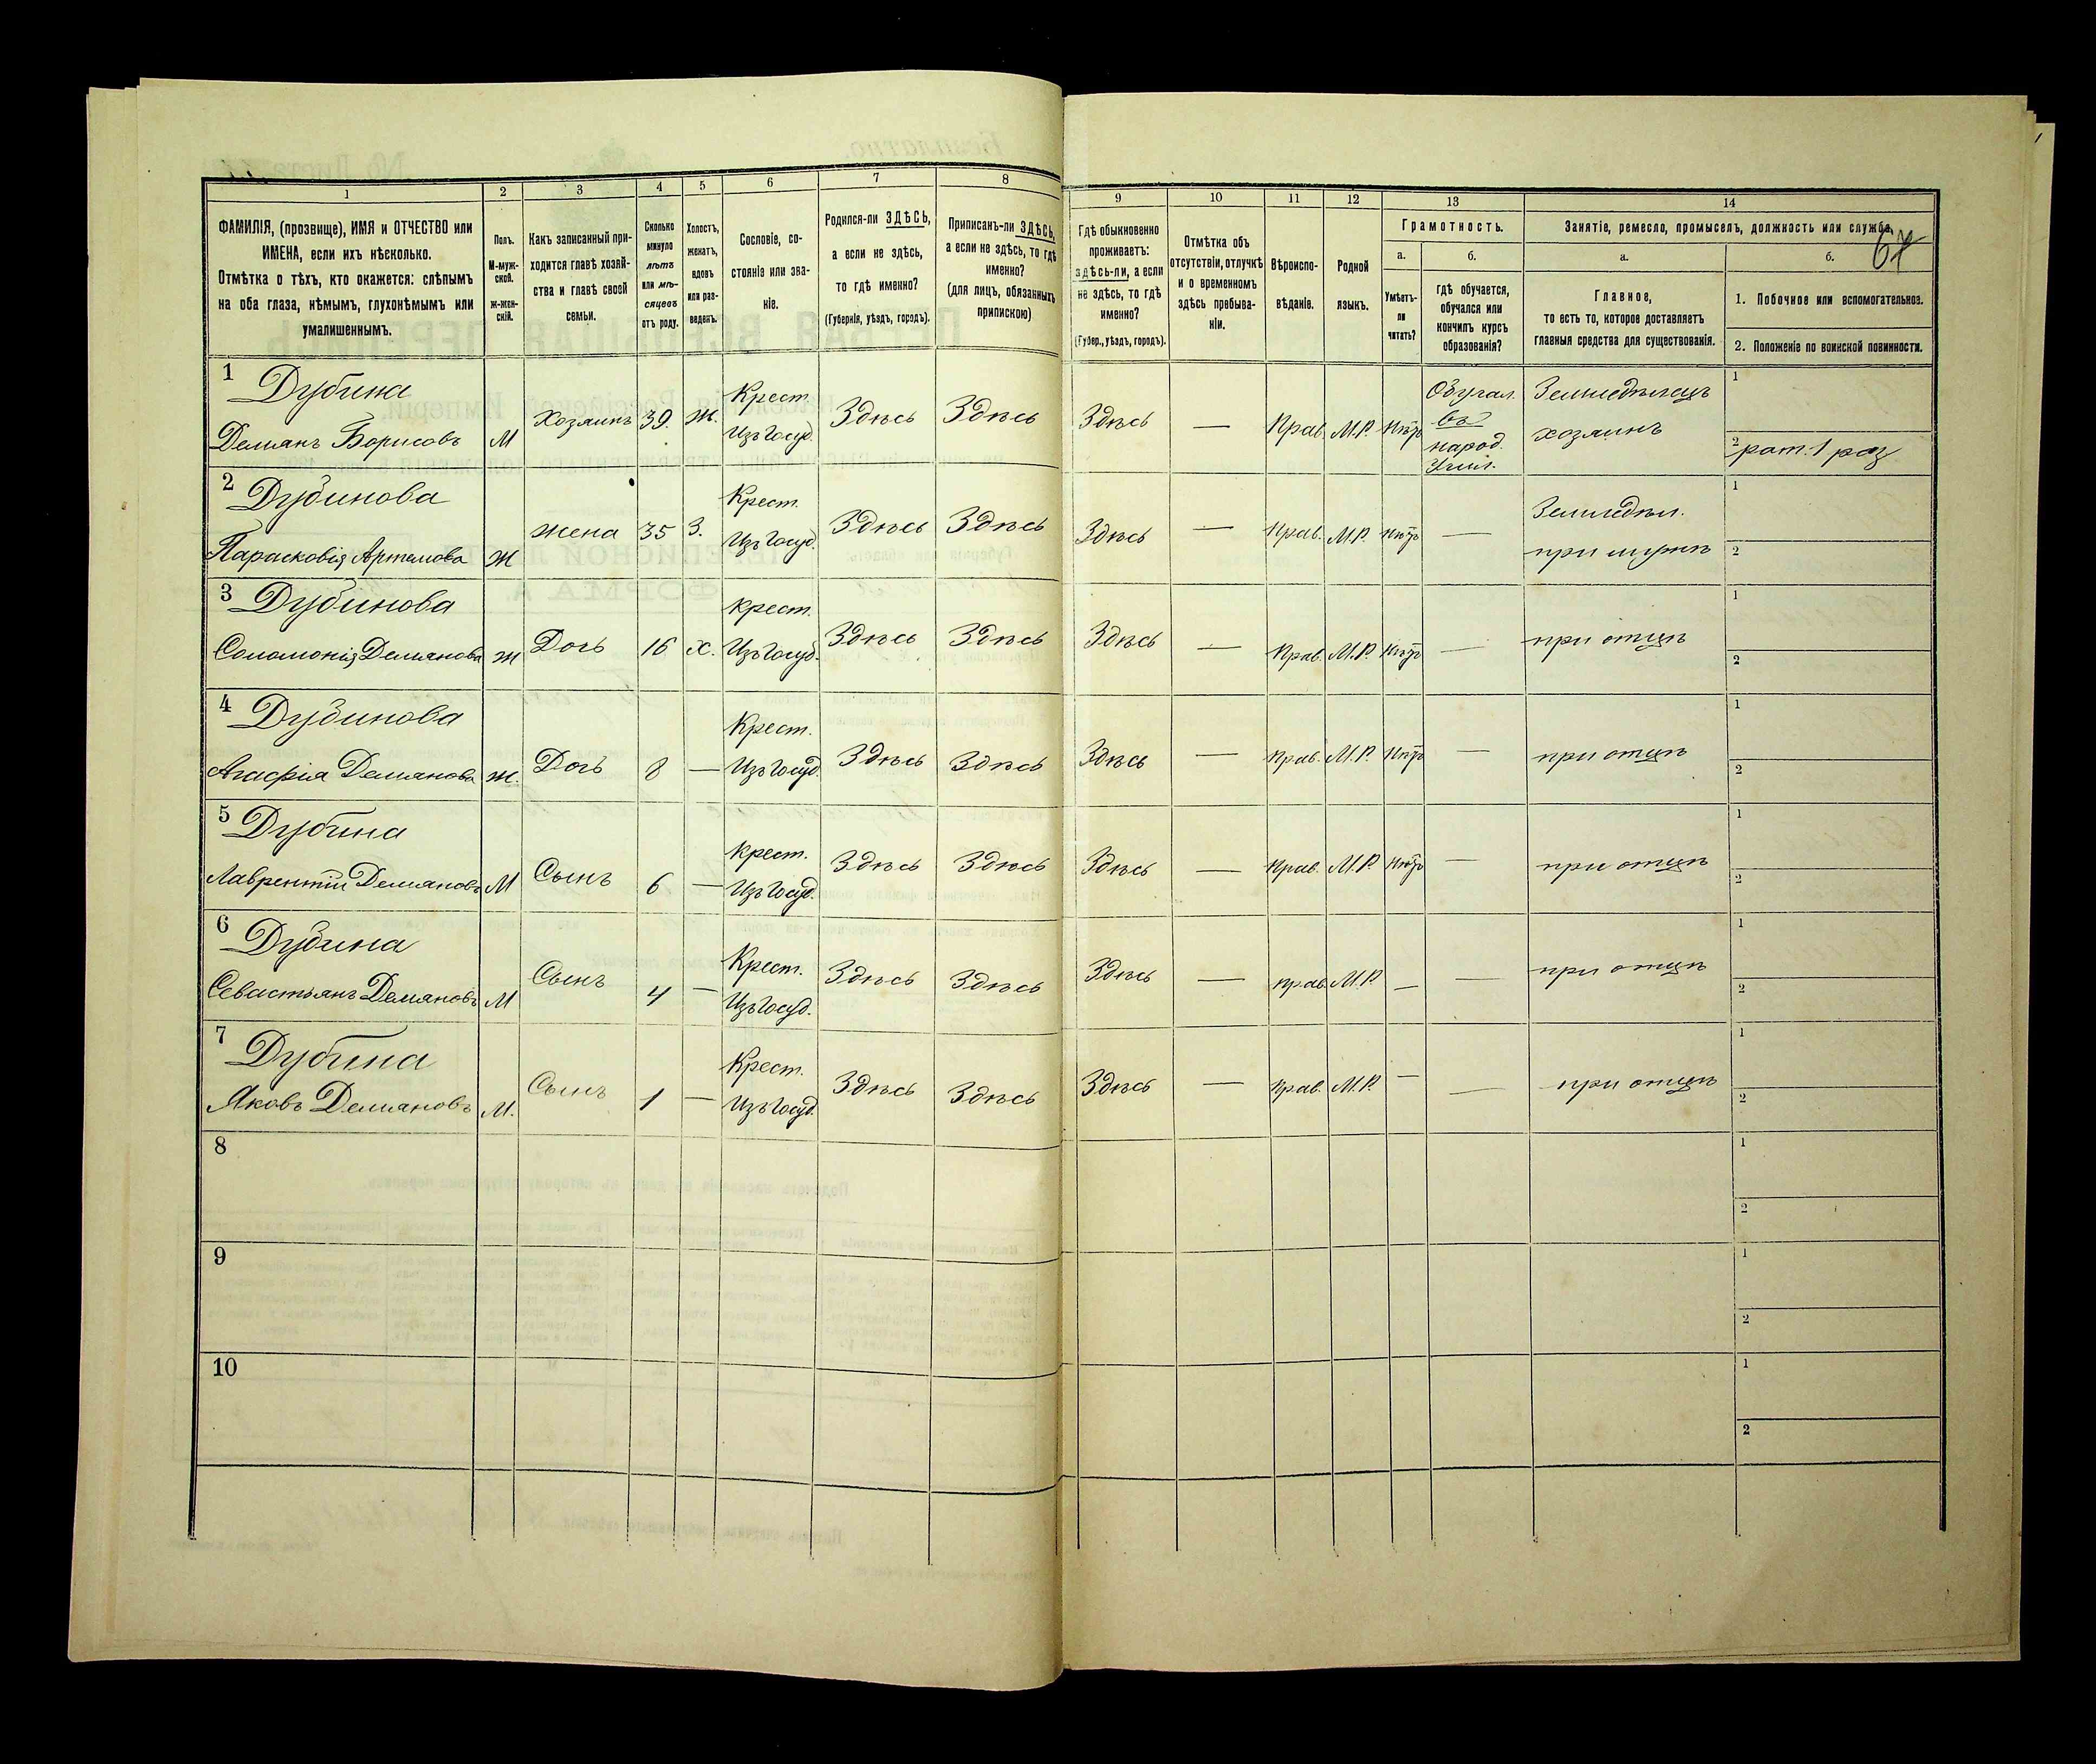 1 2 3 4 5 6 7 8
ФАМИЛІЯ, (прозвище), ИМЯ и ОТЧЕСТВО или
ИМЕНА, если ихъ нѣсколько.
Отмѣтка о тѣхъ, кто окажется: слѣпымъ
на оба глаза, нѣмымъ, глухонѣмымъ или
умалишеннымъ.
Полъ.
М-муж-
ской.
ж-жен-
скій.
Какъ записанный при-
ходится главѣ хозяй-
ства и главѣ своей
семьи.
Сколько
минуло
лѣтъ
или мѣ-
сяцевъ
отъ роду.
Холостъ,
женатъ,
вдовъ
или раз-
веденъ.
Сословіе, со-
стояніе или зва-
ніе.
Родился-ли ЗДѢСЬ,
а если не здѣсь,
то гдѣ именно?
(Губернія, уѣздъ, городъ).
Приписанъ-ли ЗДѢСЬ,
а если не здѣсь, то гдѣ
именно?
(для лицъ, обязанныхъ
припискою)
9 10 11 12 13 14
Гдѣ обыкновенно
проживаетъ:
здѣсь-ли, а если
не здѣсь, то гдѣ
именно?
(Губер., уѣздъ, городъ).
Отмѣтка объ
отсутствіи, отлучкѣ
и о временномъ
здѣсь пребыва-
ніи.
Вѣроиспо-
вѣданіе.
Родной
языкъ.
Грамотность.
а.
Умѣетъ-
ли
читать?
б.
гдѣ обучается,
обучался или
кончилъ курсъ
образованія?
Занятіе, ремесло, промыселъ, должность или служба.
а.
Главное,
то есть то, которое доставляетъ
главныя средства для существованія.
б.
1. Побочное или вспомогательное.
2. Положеніе по воинской повинности.
1 Дубина
Демянъ Борисовъ М Хозяинъ 39. Ж. Крест. Изъ Госуд. Здѣсь Здѣсь Здѣсь — Прав. М.Р. Нѣтъ
народ.
Учил.
Земледѣлецъ
хозяинъ
1
2 рат. 1 раз
2 Дубинова
Парасковія Артемова Ж Жена 35 З. Крест. Изъ Госуд. Здѣсь Здѣсь Здѣсь — Прав. М.Р. Нѣтъ —
Земледѣл.
при мужѣ
1
2
3 Дубинова
Соломонія Демянова Ж Дочь 16 х. Крест. Изъ Госуд. Здѣсь Здѣсь Здѣсь — Прав. М.Р. Нѣтъ — при отцѣ
1
2
4 Дубинова
Агафія Демянова Ж. Дочь 8 — Крест. Изъ Госуд. Здѣсь Здѣсь Здѣсь — Прав. М.Р. Нѣтъ — при отцѣ
1
2
5 Дубина
Лаврентій Демяновъ М Сынъ 6 — Крест. Изъ Госуд. Здѣсь Здѣсь Здѣсь — Прав. М.Р. Нѣтъ — при отцѣ
1
2
6 Дубина
Севастьянъ Демяновъ М Сынъ 4 — Крест. Изъ Госуд. Здѣсь Здѣсь Здѣсь — Прав. М.Р. — — при отцѣ
1
2
7 Дубина
Яковъ Демяновъ М. Сынъ 1 — Крест. Изъ Госуд. Здѣсь Здѣсь Здѣсь — Прав. М.Р. — — при отцѣ
1
2
8
1
2
9
1
2
10
1
2